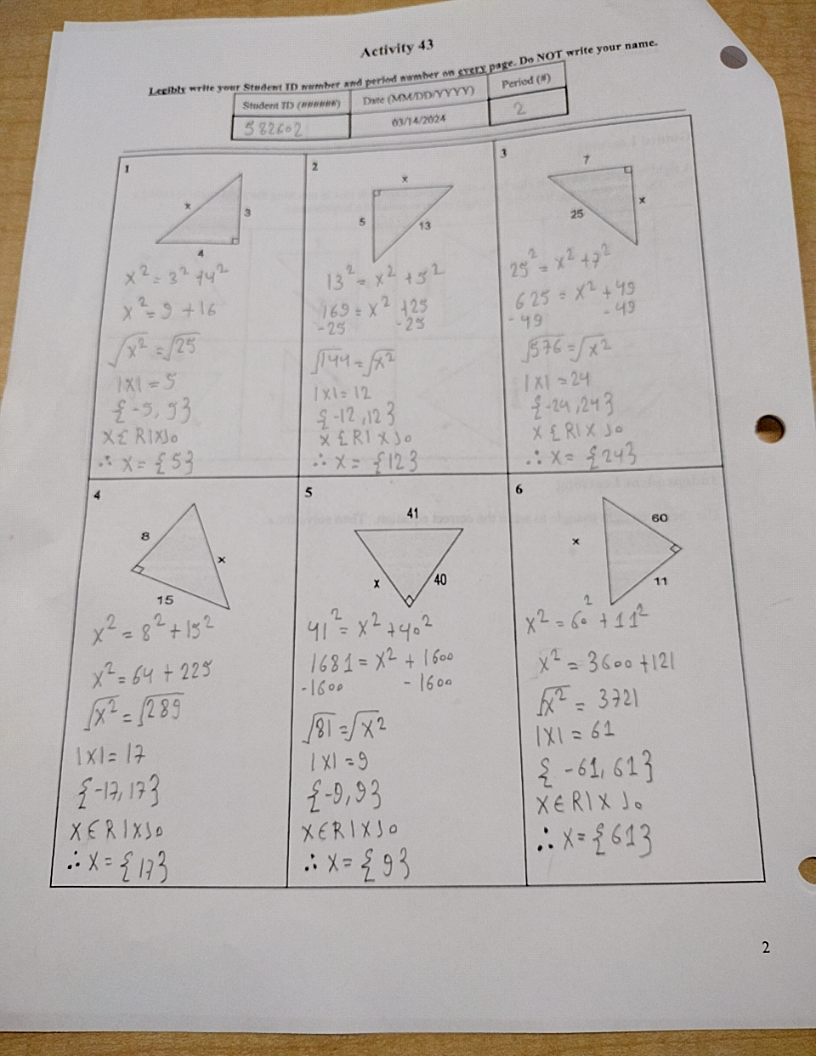 Activity 43
Legibly write your Student ID number and period number on every page. Do NOT write your name.
Student ID (######) Date (MM/DD/YYYY) Period (#)
582602 03/14/2024 2
1
x
3
4
x² = 3² + 4²
x² = 9 + 16
√x² = √25
|x| = 5
{-5, 5}
x ∈ R | x > 0
∴ x = {5}
2
x
5
13
13² = x² + 5²
169 = x² + 25
-25 -25
√144 = √x²
|x| = 12
{-12, 12}
x ∈ R | x > 0
∴ x = {12}
3
7
x
25
25² = x² + 7²
625 = x² + 49
-49 -49
√576 = √x²
|x| = 24
{-24, 24}
x ∈ R | x > 0
∴ x = {24}
4
8
x
15
x² = 8² + 15²
x² = 64 + 225
√x² = √289
|x| = 17
{-17, 17}
x ∈ R | x > 0
∴ x = {17}
5
41
x
40
41² = x² + 40²
1681 = x² + 1600
-1600 -1600
√81 = √x²
|x| = 9
{-9, 9}
x ∈ R | x > 0
∴ x = {9}
6
60
x
11
x² = 60² + 11²
x² = 3600 + 121
√x² = 3721
|x| = 61
{-61, 61}
x ∈ R | x > 0
∴ x = {61}
2